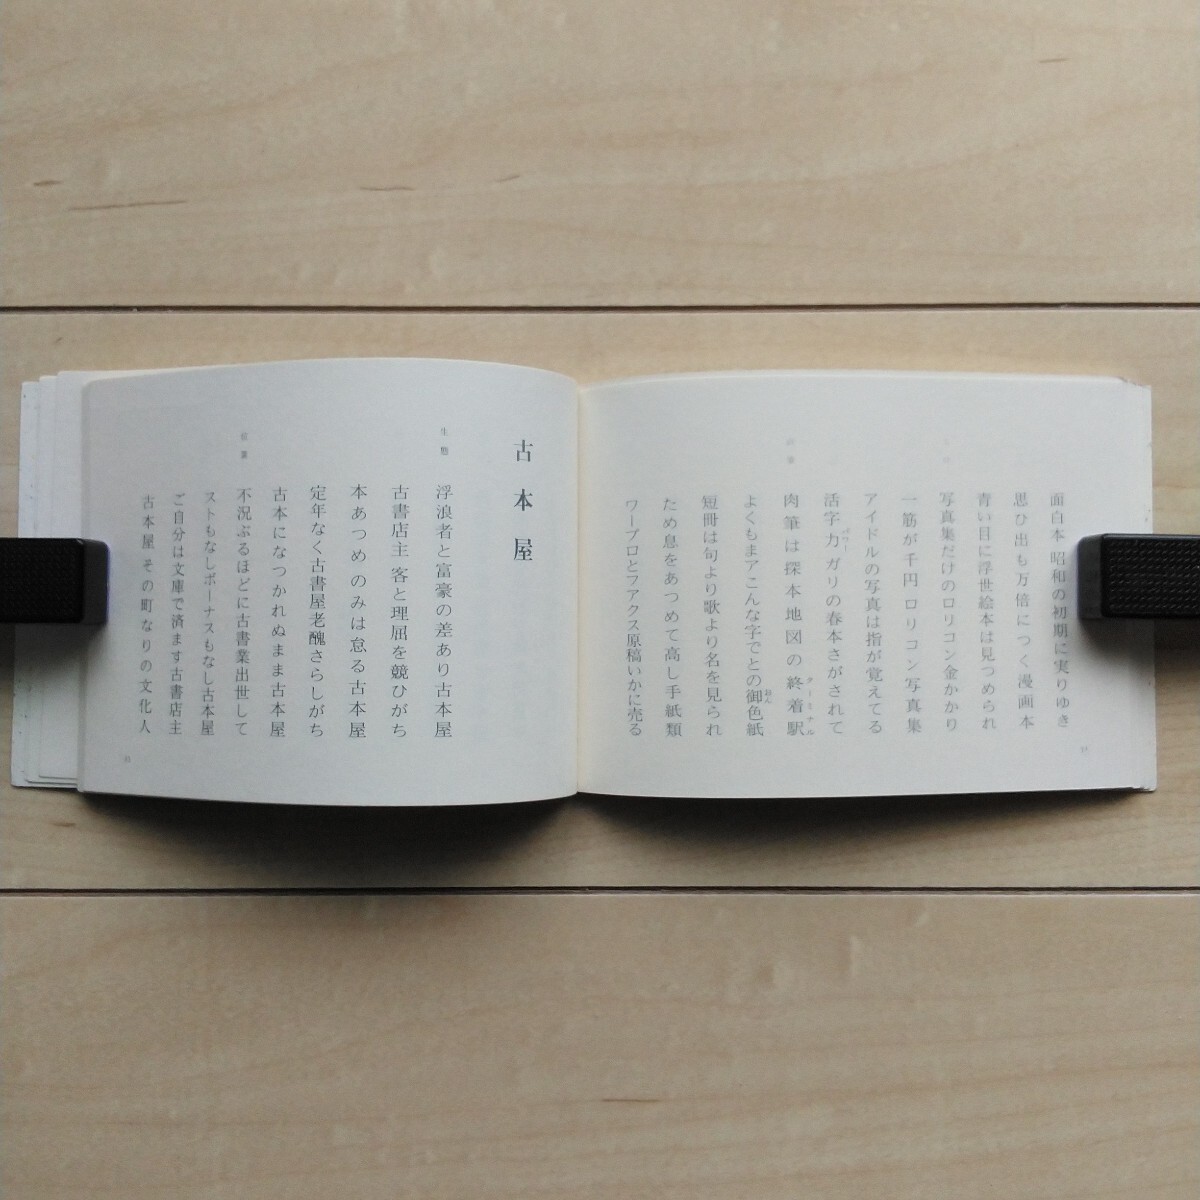 面白本 昭和の初期に実りゆき
思ひ出も万倍につく漫画本
青い目に浮世絵本は見つめられ
写真集だけのロリコン金かかり
一筋が千円 ロリコン写真集
アイドルの写真は指が覚えてる
活字力 ガリの春本さがされて
肉筆は探本地図の終着駅
ターミナル
よくもまアこんな字でとの御色紙
短冊は句より歌より名を見られ
ため息をあつめて高し手紙類
ワープロとフアクス原稿いかに売る
古本屋
生態
浮浪者と富豪の差あり古本屋
古書店主 客と理屈を競ひがち
本あつめ のみは怠る古本屋
定年なく古書屋老醜さらしがち
古本になつかれぬまま古本屋
不況ぶるほどに古書業出世して
ストもなしボーナスもなし古本屋
ご自分は文庫で済ます古書店主
古本屋 その町なりの文化人